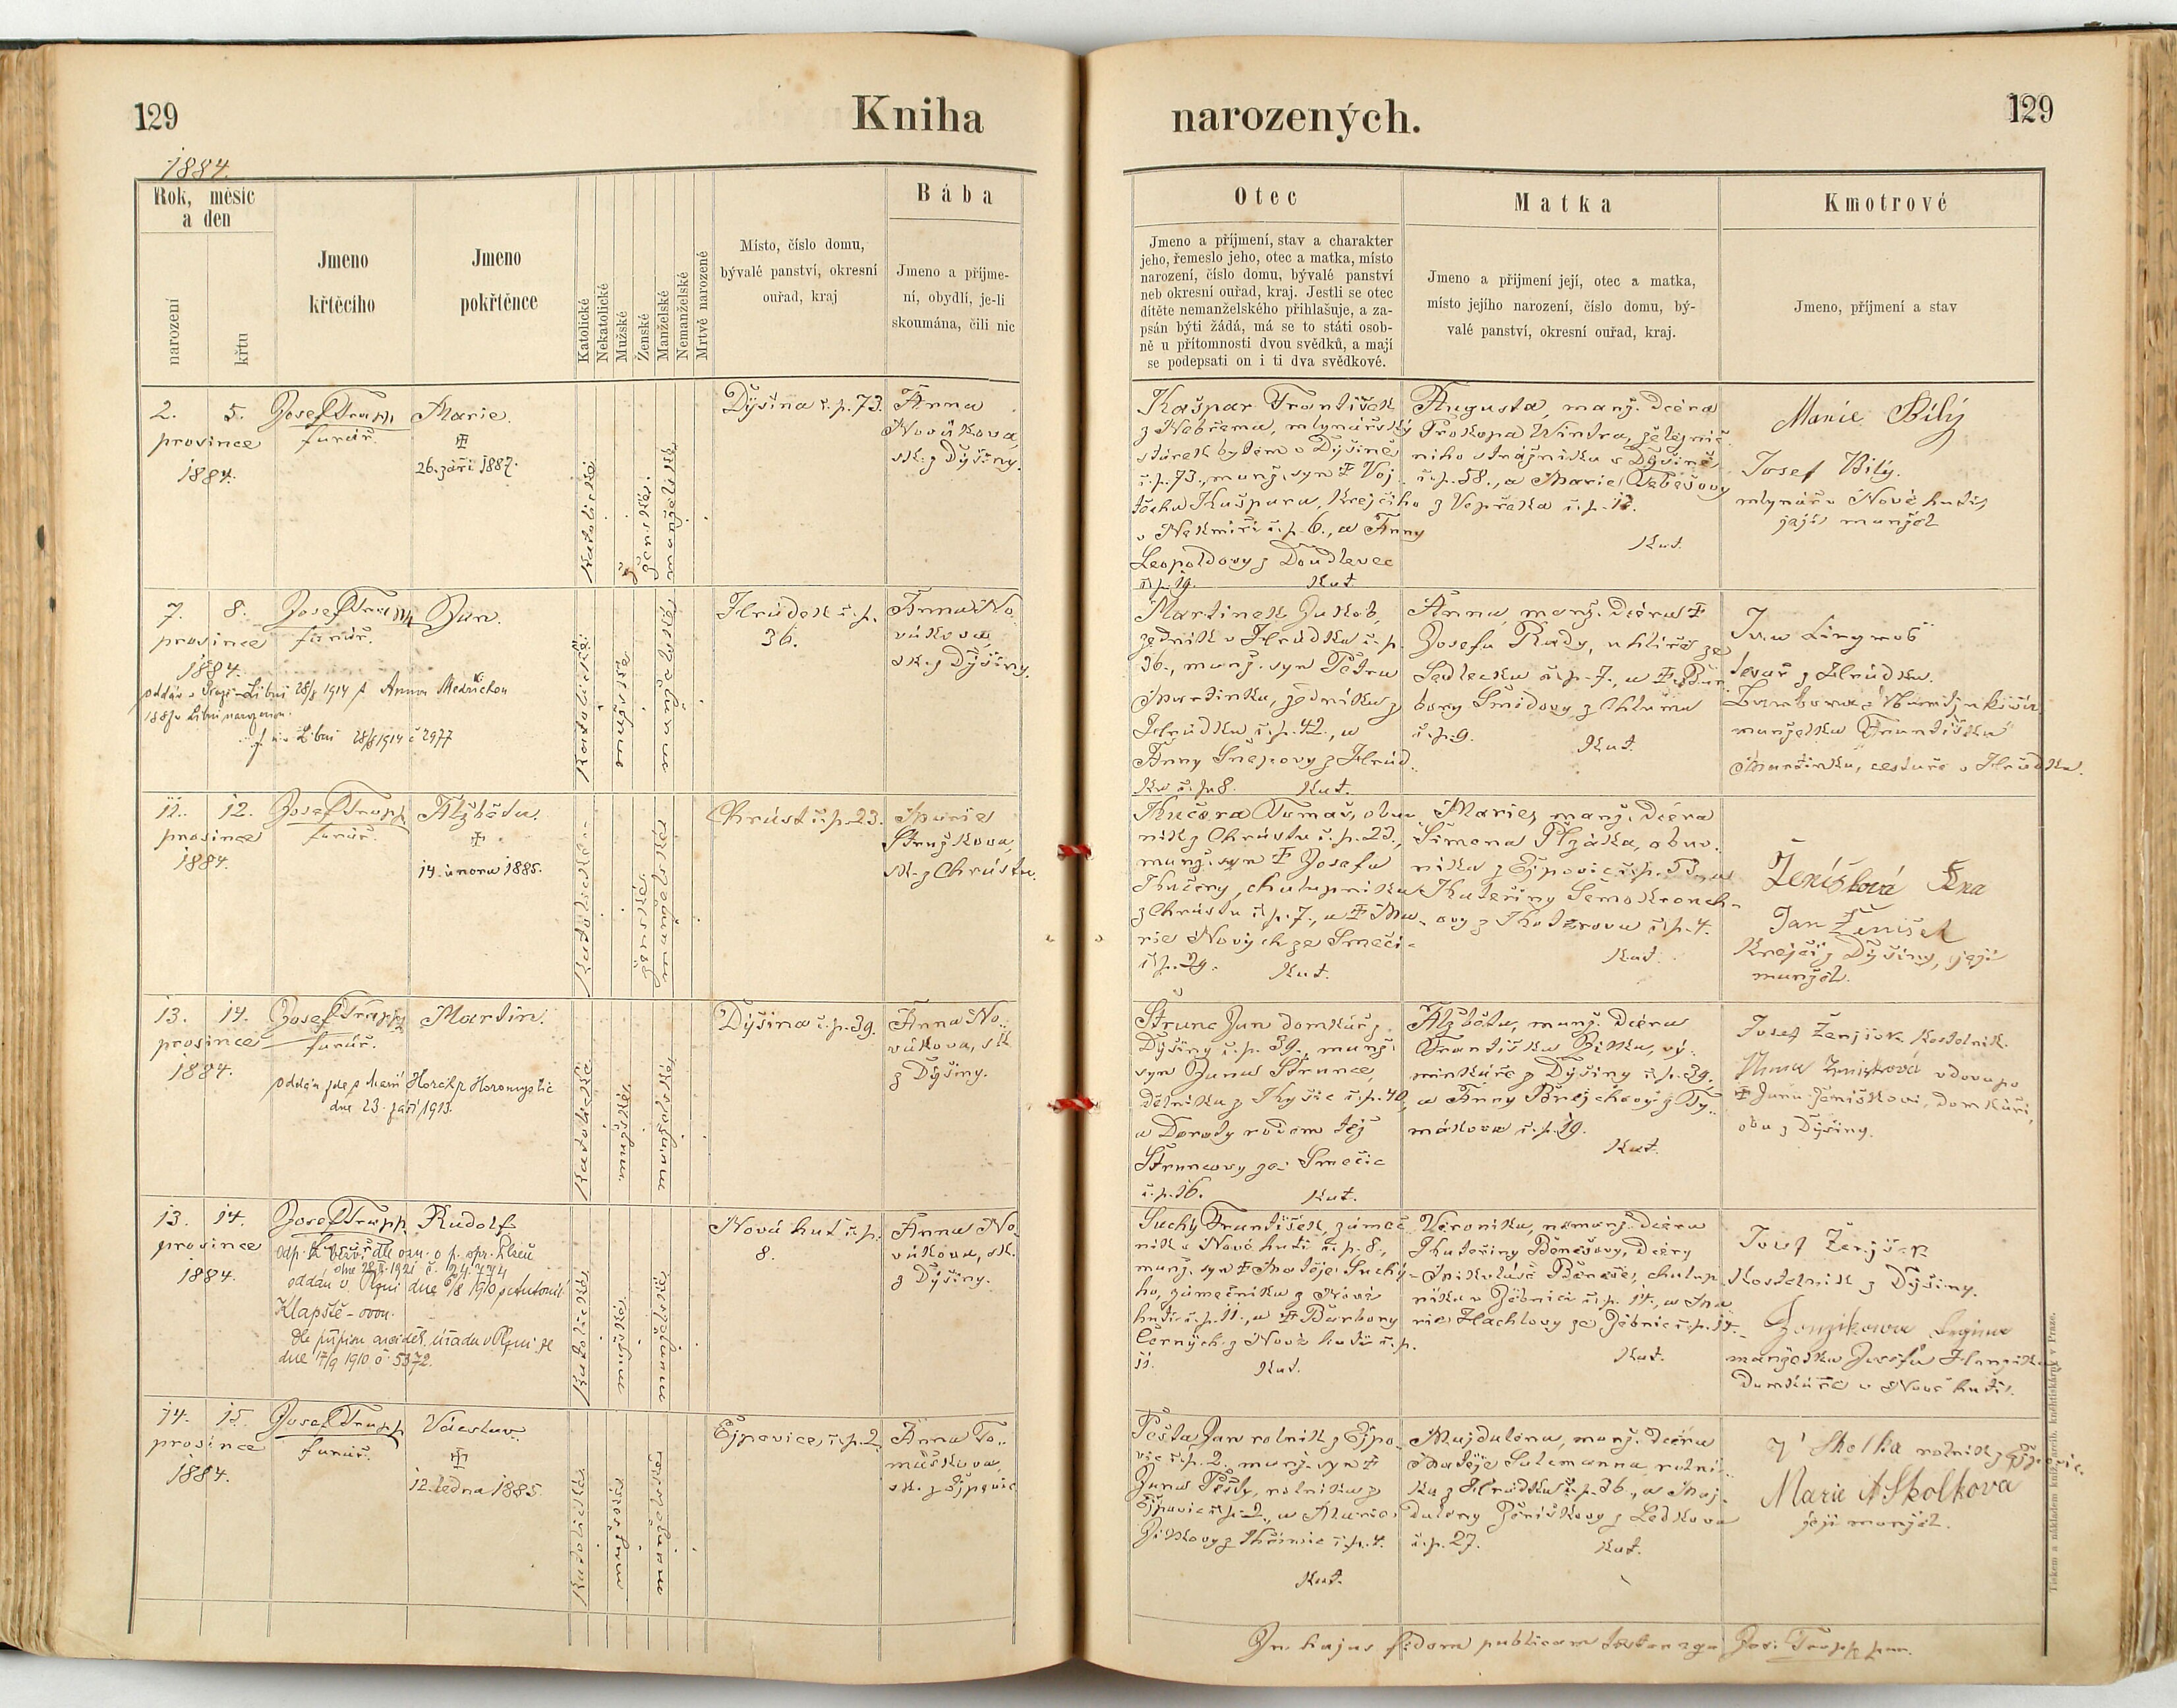 129
Kniha
narozených.
129
1884.
Rok, měsíc
a den
narození
křtu
Jmeno
křtěcího
Jmeno
pokřtěnce
Katolické
Nekatolické
Mužské
Ženské
Manželské
Nemanželské
Mrtvě narozené
Místo, číslo domu,
bývalé panství, okresní
ouřad, kraj
Bába
Jmeno a příjme-
ní, obydlí, je-li
skoumána, čili nic
Otec
Jmeno a příjmení, stav a charakter
jeho, řemeslo jeho, otec a matka, místo
narození, číslo domu, bývalé panství
neb okresní ouřad, kraj. Jestli se otec
dítěte nemanželského přihlašuje, a za-
psán býti žádá, má se to státi osob-
ně u přítomnosti dvou svědků, a mají
se podepsati on i ti dva svědkové.
Matka
Jmeno a příjmení její, otec a matka,
místo jejího narození, číslo domu, bý-
valé panství, okresní ouřad, kraj.
Kmotrové
Jmeno, příjmení a stav
2. 5.
prosince
1884.
Josef Trapp
farář.
Marie.
26. září 1887.
katolické
ženské
manželské
Dýšina č. p. 73.
Anna
Nováková,
sk. z Dýšiny.
Kašpar František
z Nebřema, mlynářský
stárek bytem v Dýšině
č. p. 73., manž. syn † Voj-
těcha Kašpara, krejčího
v Nekmíři č. p. 6., a Anny
Leopoldovy z Doudlevec
č. p. 19. Kat.
Augusta, manž. dcera
Prokopa Wintra, železnič-
ního strážníka v Dýšině
č. p. 58., a Marie
č. p. 12.
Kat.
Marie Bílý
Josef Bílý.
mlynář v Nové huti,
její manžel
7. 8.
prosince
1884.
Josef Trapp
farář.
Jan.
oddán v Praze-Libni 28/6 1914 s Annou
Libni 28/6 1914 č 2977
katolické
mužské
manželské
Hrádek č. p.
36.
Anna No-
váková,
sk. z Dýšiny.
Martinek Jakob,
zedník v Hrádku č. p.
36., manž. syn Petra
Martinka, zedníka z
Hrádku č. p. 42., a
Anny z Hrád-
ku č. p. 8. Kat.
Anna, manž. dcera †
Josefa Rady, uhlíře ze
Sedlecka č. p. 7., a † Bar-
bory Šmídovy z Chlumu
č. p. 9.
Kat.
tesař z Hrádku.
manželka Františka
Martinka, cestáře v Hrádku.
11. 12.
prosince
1884.
Josef Trapp
farář.
Alžběta.
14. února 1885.
katolické
ženské
manželské
Chrást č. p. 23.
Marie
Stružková,
sk. z Chrástu.
Kučera Tomáš, obuv-
ník z Chrástu č. p. 23.,
manž. syn † Josefa
Kučery, chalupníka
z Chrástu č. p. 7., a † Ma-
rie Nových ze Smečic
č. p. 29. Kat.
Marie, manž. dcera
Šimona Plzáka, obuv-
níka z Ejpovic č. p.
Kateřiny
ovy z Kokorova č. p. 4.
Kat.
Ženíšková
Jan Ženíšek
krejčí z Dýšiny, její
manžel.
13. 14.
prosince
1884.
Josef Trapp
farář.
Martin.
dne 23. září 1913
katolické
mužské
manželské
Dýšina č. p. 39.
Anna No-
váková, sk.
z Dýšiny.
Štrunc Jan domkář z
Dýšiny č. p. 39., manž.
syn Jana Štrunce,
dělníka z Kyšic č. p. 40,
a Doroty rodem též
Štruncovy ze Smečic
č. p. 16. Kat.
Alžběta, manž. dcera
Františka vý-
minkáře z Dýšiny č. p. 39.,
a Anny z Ty-
mákova č. p. 19.
Kat.
Josef Ženjšek kostelník.
Anna Ženíšková vdova po
† Janu Ženíškovi, domkáři,
oba z Dýšiny.
13. 14.
prosince
1884.
Josef Trapp
farář
Rudolf
oddán v Plzni dne 6/8 1910 s Antonií
Klapště-ovou.
dne 17/9 1910 č. 5372.
katolické
mužské
manželské
Nová huť č. p.
8.
Anna No-
váková, sk.
z Dýšiny.
Suchý František, zámeč-
ník v Nové huti č. p. 8.,
manž. syn † Matěje Suché-
ho, zámečníka z Nové
huti č. p. 11., a † Barbory
Černých z Nové hutě č. p.
11. Kat.
Veronika, nemanž. dcera
Kateřiny Benešovy, dcery
Mikuláše Beneše, chalup-
níka v Žebnici č. p. 14., a Ma-
rie Hachlovy ze Žebnic č. p. 14.
Kat.
Josef Ženjšek
kostelník z Dýšiny.
manželka Josefa
domkáře v Nové huti.
14. 15.
prosince
1884.
Josef Trapp
farář.
Václav.
12. ledna 1885.
katolické
mužské
manželské
Ejpovice č. p. 2.
Anna To-
mášková,
sk. z Ejpovic
Pešta Jan rolník z Ejpo-
vic č. p. 2., manž. syn †
Jana Pešty, rolníka z
Ejpovic č. p. 2., a Marie
č. p. 4.
Kat.
Majdalena, manž. dcera
Matěje rolní-
ka z Hrádku č. p. 36., a Maj-
daleny Ženíškovy z Letkova
č. p. 27. Kat.
J Skolka rolník z Ejpovic.
Marie Skolkova
její manžel.
In hujus fidem publicam testor ego Jos. Trapp par.
Tiskem a nákladem kniž. arcib. knihtiskárny v Praze.